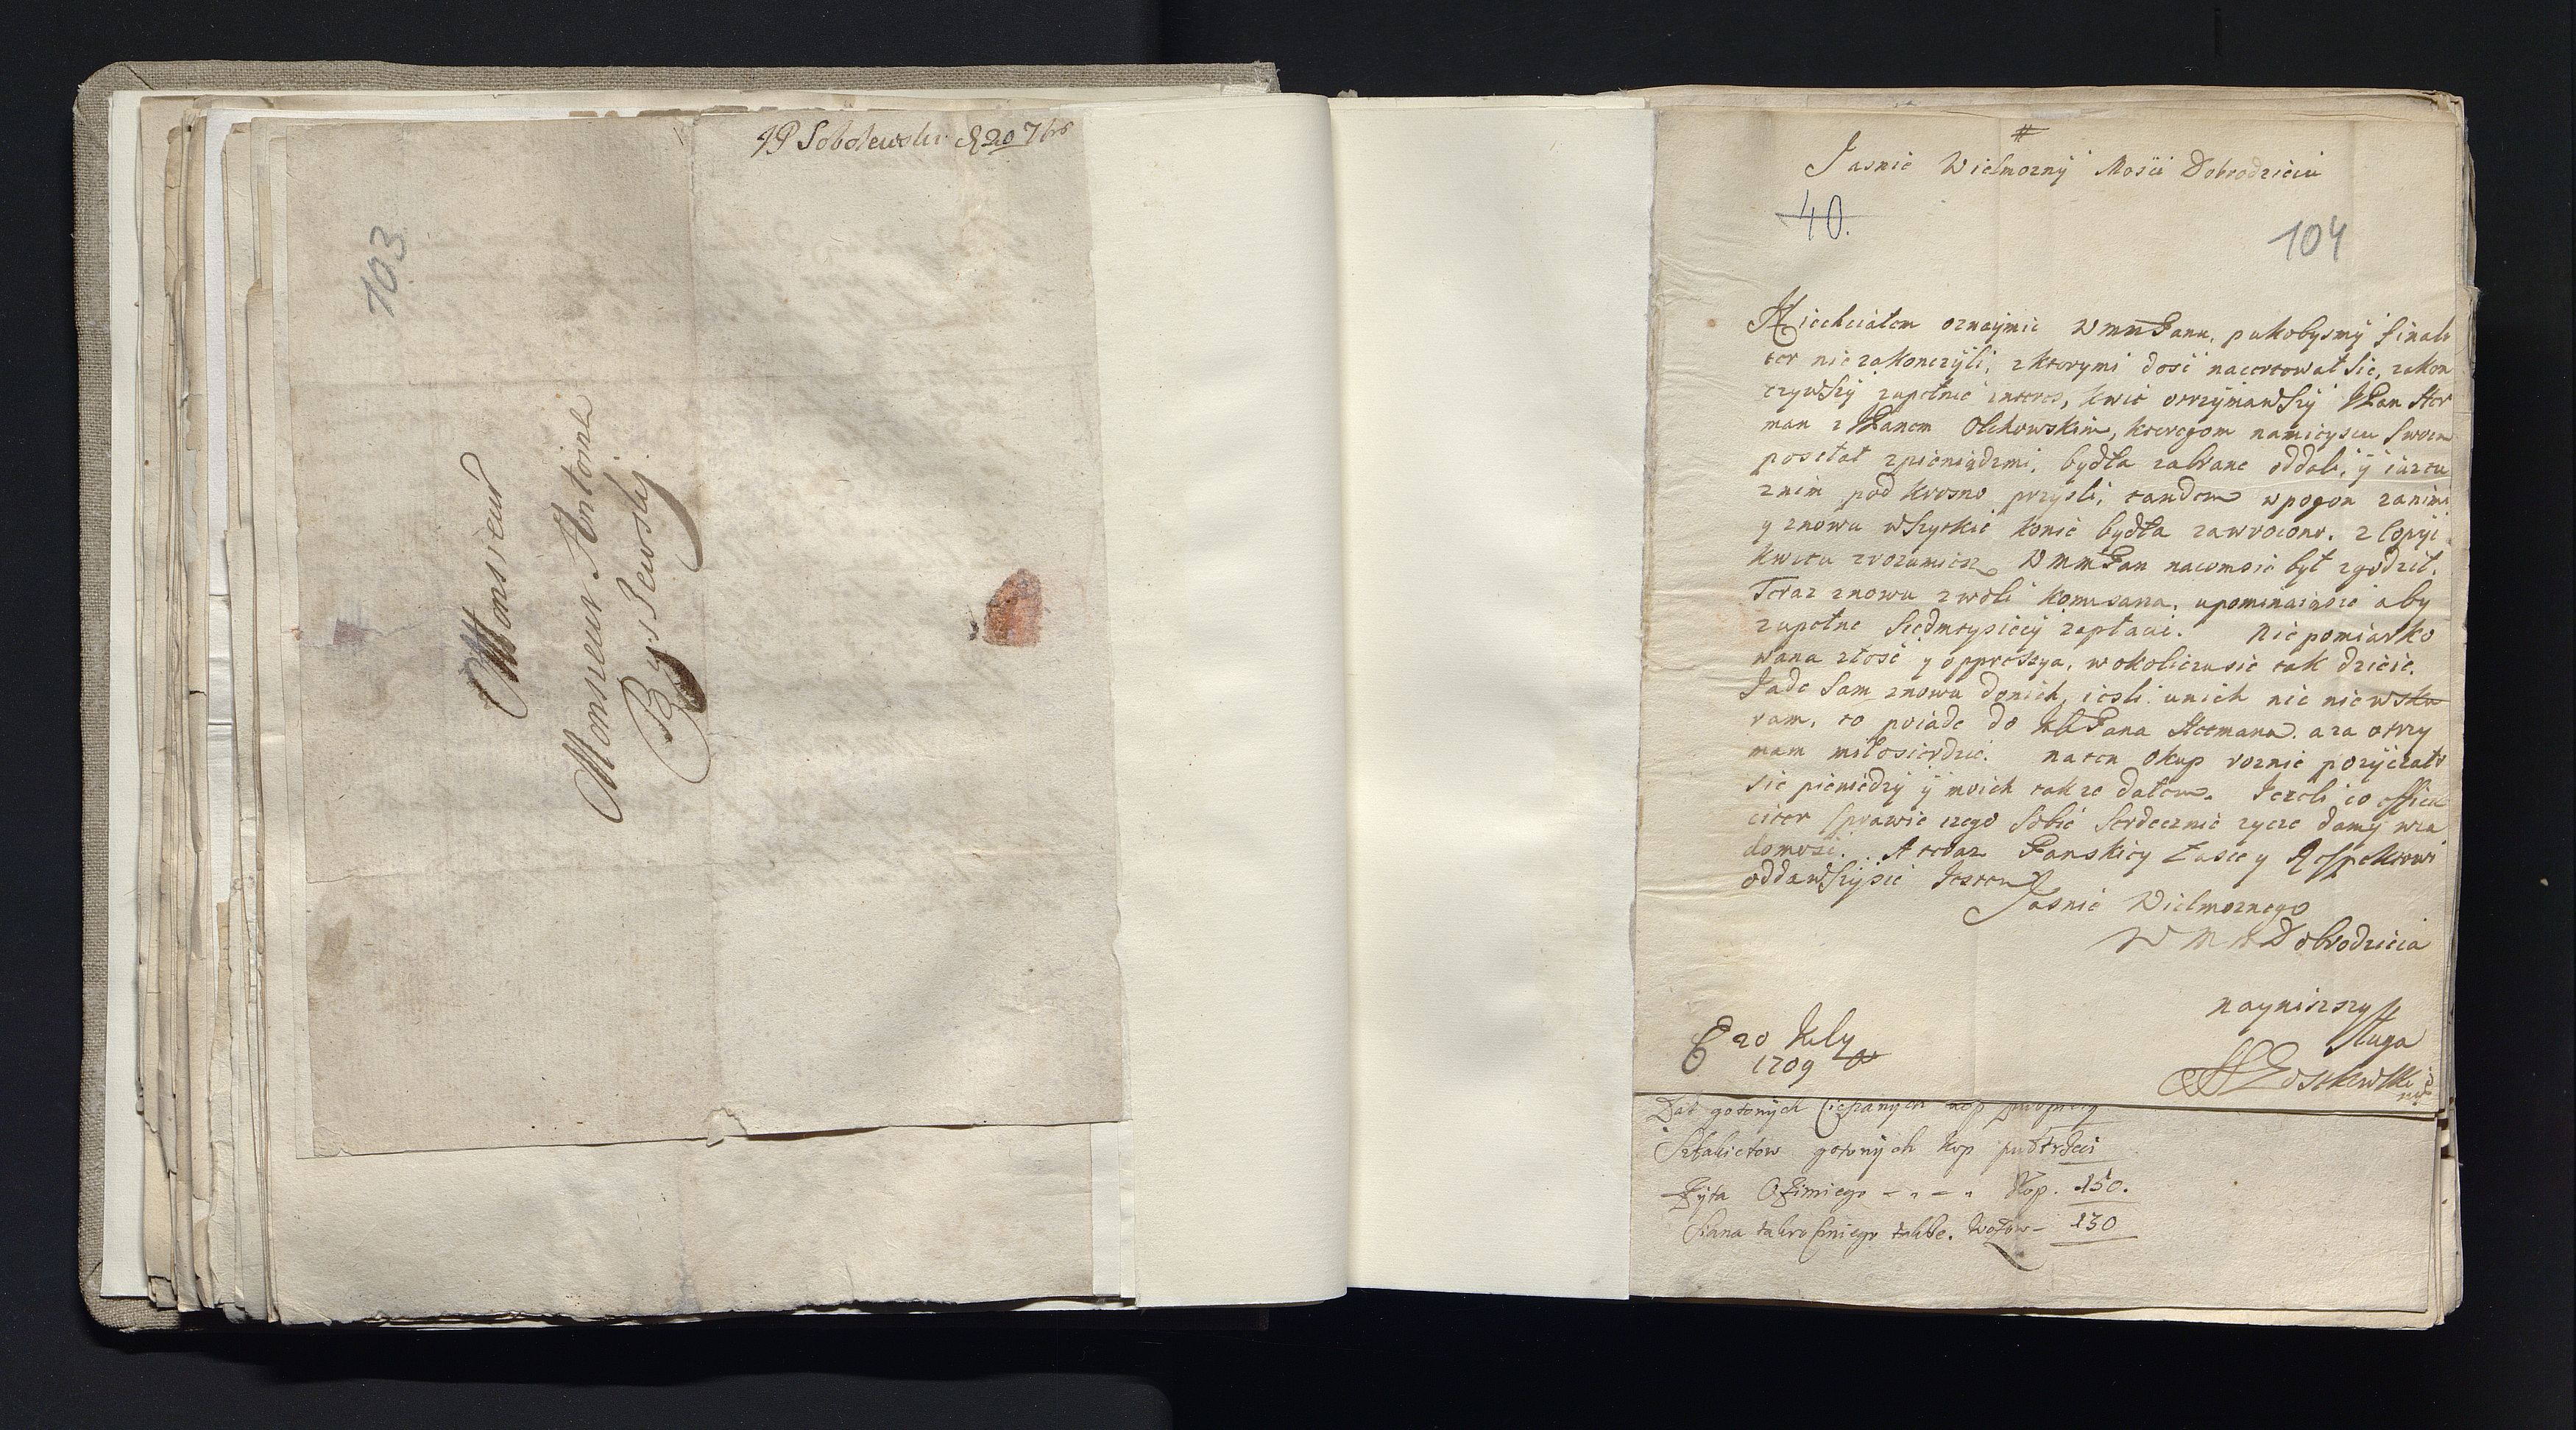 JP Sobolewski d 20 7bris
103
Monsieur
Monsieur Antoine
Byszewskij
#
Jasnie Wielmozny Mosci Dobrodzieiu
40.
104
Niechciałem oznaymic WmmPanu, pokobysmy finali
ter nie zakonczyli, z ktorymi dosc nacertowałsie, zakon
czywszy zupełnie interes, kwit otrzymawszy JPan Her
man z JPanem Olchowskim, ktoregom namieyscu swoim
posełał zpieniądzmi, bydła zabrane oddali, y iuzcu
znim pod Krosno przysli, tandem wpogon zanimi
y znowu wszytkie konie bydła zawrocono. z Copyi
kwitu zrozumiesz WmmPan nacomsie był zgodził.
Teraz znowu zwoli komisarza, upominaiąsie aby
zupełne siedmtysiecy zapłacic. Nie pomiarko
wana złosc y oppressya, wokoliczusie tak dzieie.
Jade sam znowu donich, iesli unich nic niewsku
ram, to poiade do JWPana Hetmana, aza otrzy
mam miłosierdzie. naten okup roznie pozyczało
sie pieniedzy y moich takze dałem. Jezeli co effica
citer sprawie czego sobie serdecznie zycze damy wia
domosc. A teraz Panskiey Łasce y Respektowi
oddawszysie Jestem
Jasnie Wielmoznego
WMM Dobrodzieia
nayniszszy
sługa
20 July
1709
gotonych kop
Sztakietow gotonych kop pułtrzeci
Zyta Ozimiego - " - " Kop. 150.
Siana takze. Wozow - 130